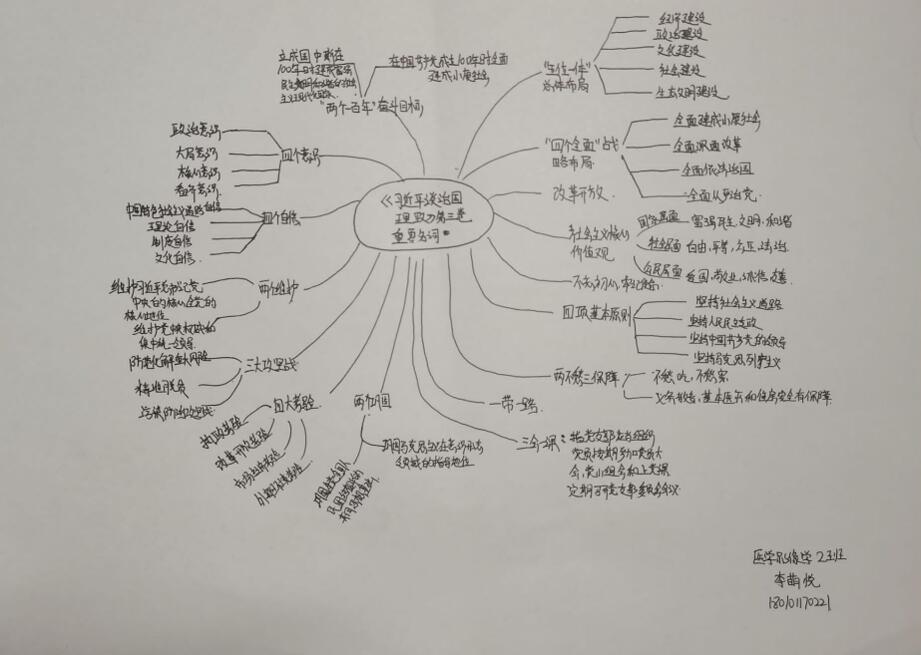 《习近平谈治国
理政》第三卷
重要名词
"五位一体"
总体布局
经济建设
政治建设
文化建设
社会建设
生态文明建设
"四个全面"战
略布局
全面建成小康社会
全面深化改革
全面依法治国
全面从严治党
改革开放
社会主义核心
价值观
国家层面
富强,民主,文明,和谐
社会层面
自由,平等,公正,法治
公民层面
爱国,敬业,诚信,友善
不忘初心,牢记使命
四项基本原则
坚持社会主义道路
坚持人民民主专政
坚持中国共产党的领导
坚持马克思列宁主义
两不愁三保障
不愁吃,不愁穿
义务教育,基本医疗和住房安全有保障
一带一路
三会一课:
指党支部应当组织
党员按期参加党员大
会,党小组会和上党课
定期召开党支部委员会会议
两个巩固
巩固马克思主义在意识形态
领域的指导地位
四大考验
执政考验
改革开放考验
市场经济考验
外部环境考验
三大攻坚战
防范化解重大风险
精准脱贫
污染防治攻坚战
两个维护
维护习近平总书记党
中央的核心全党的
核心地位
维护党中央权威和
集中统一领导
四个自信
中国特色社会主义道路自信
理论自信
制度自信
文化自信
四个意识
政治意识
大局意识
核心意识
看齐意识
"两个一百年"奋斗目标
在中国共产党成立100年时全面
建成小康社会
医学影像学2班
李萌悦
18010170221